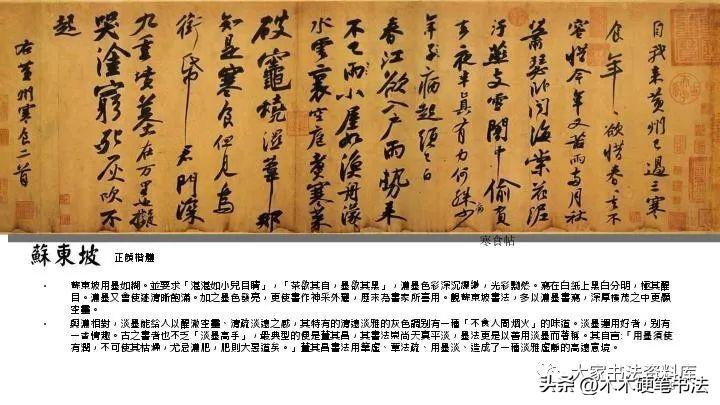 自我來黃州已過三寒
食年〻欲惜春春去不
容惜今年又苦雨兩月秋
蕭瑟卧聞海棠花泥
汙燕支雪闇中偷負
去夜半真有力何殊少
年子病起頭已白
春江欲入戶雨勢來
不已雨小屋如漁舟濛〻
水雲裏空庖煮寒菜
破竈燒濕葦那
知是寒食但見烏
銜帋君門深
九重墳墓在万里也擬
哭塗窮死灰吹不
起
右黃州寒食二首
寒食帖
蘇東坡
• 蘇東坡用墨如糊。并要求「湛湛如小兒目睛」,「茶欲其白,墨欲其黑」,濃墨色彩深沉,光彩黝然。寫在白紙上黑白分明,極其醒
目。濃墨又會使迹清晰飽滿。加之墨色發亮,更使書作神采外曜,歷來為書家所喜用。觀蘇東坡書法,多以濃墨書寫,深厚樸茂之中更顯
空靈。
• 與濃相對,淡墨能給人以醒澈空靈、清疏淡遠之感,其特有的清遠淡雅的灰色調別有一種「不食人間烟火」的味道。淡墨運用好者,別有
一番情趣。古之書者也不乏「淡墨高手」,最典型的便是董其昌,其書法崇尚天真平淡,墨法更是以善用淡墨而著稱。其自言:「用墨須使
有潤,不可使其枯燥,尤忌濃肥,肥則大惡道矣。」董其昌書法用筆虛、章法疏、用墨淡、造成了一種淡雅虛靜的高遠意境。
大家书法资料库
头条@木木硬笔书法